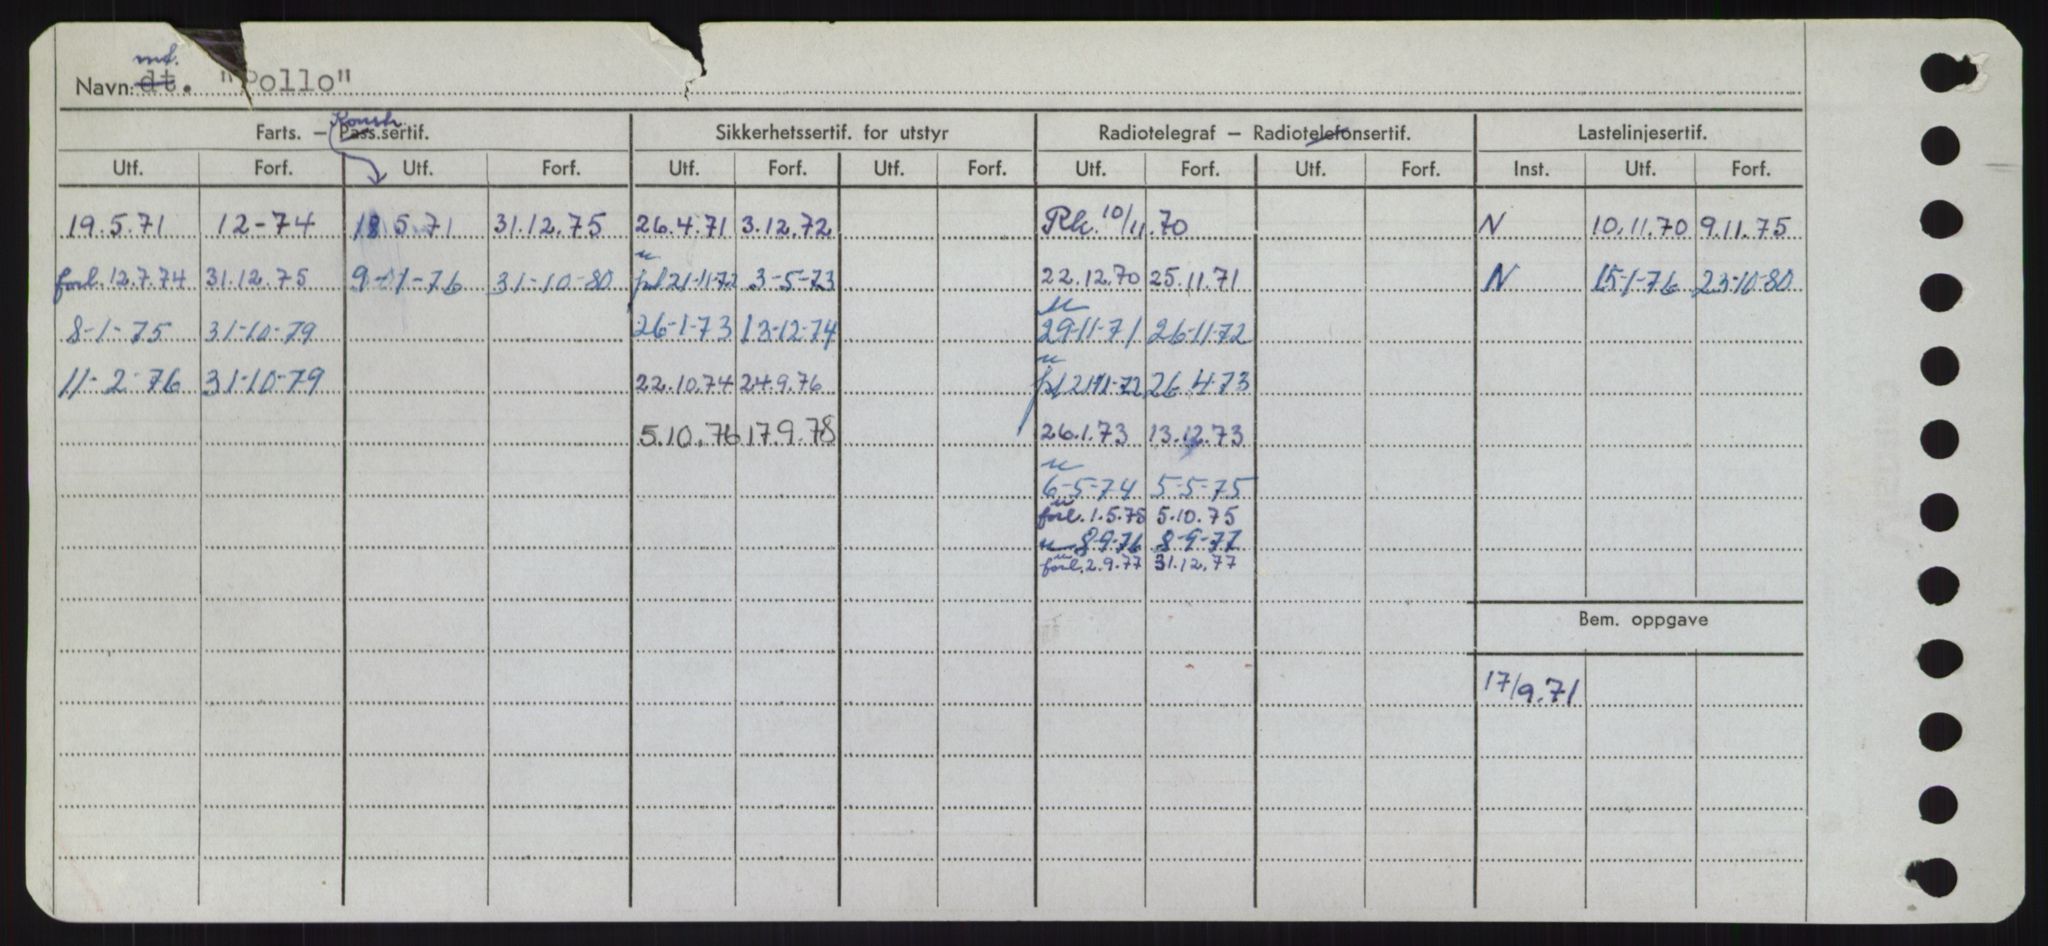 mt.
Navn: dt. "Pollo"
Konstr.
Farts. — Pass.sertif. Sikkerhetssertif. for utstyr Radiotelegraf — Radiotelefonsertif. Lastelinjesertif.
Utf. Forf. Utf. Forf. Utf. Forf. Utf. Forf. Utf. Forf. Utf. Forf. Inst. Utf. Forf.
19.5.71 12-74 18 5.71 31.12.75 26.4.71 3.12.72 Rk. 10/11.70 N 10.11.70 9.11.75
forl. 12.7.74 31.12.75 9-1-76 31-10-80 u fol 21-11-72 3-5-73 22.12.70 25.11.71 N 15-1-76 23-10-80
8-1-75 31-10-79 26-1-73 13-12-74 u 29-11-71 26-11-72
11-2-76 31-10-79 22.10.74 24.9.76 u fol 21-11-72 26-4-73
5.10.76 17.9.78 26.1.73 13.12.73
u 6-5-74 5-5-75
u forl. 1.5.75 5.10.75
u 8-9-76 8-9-77
u forl. 2.9.77 31.12.77
Bem. oppgave
17/9.71